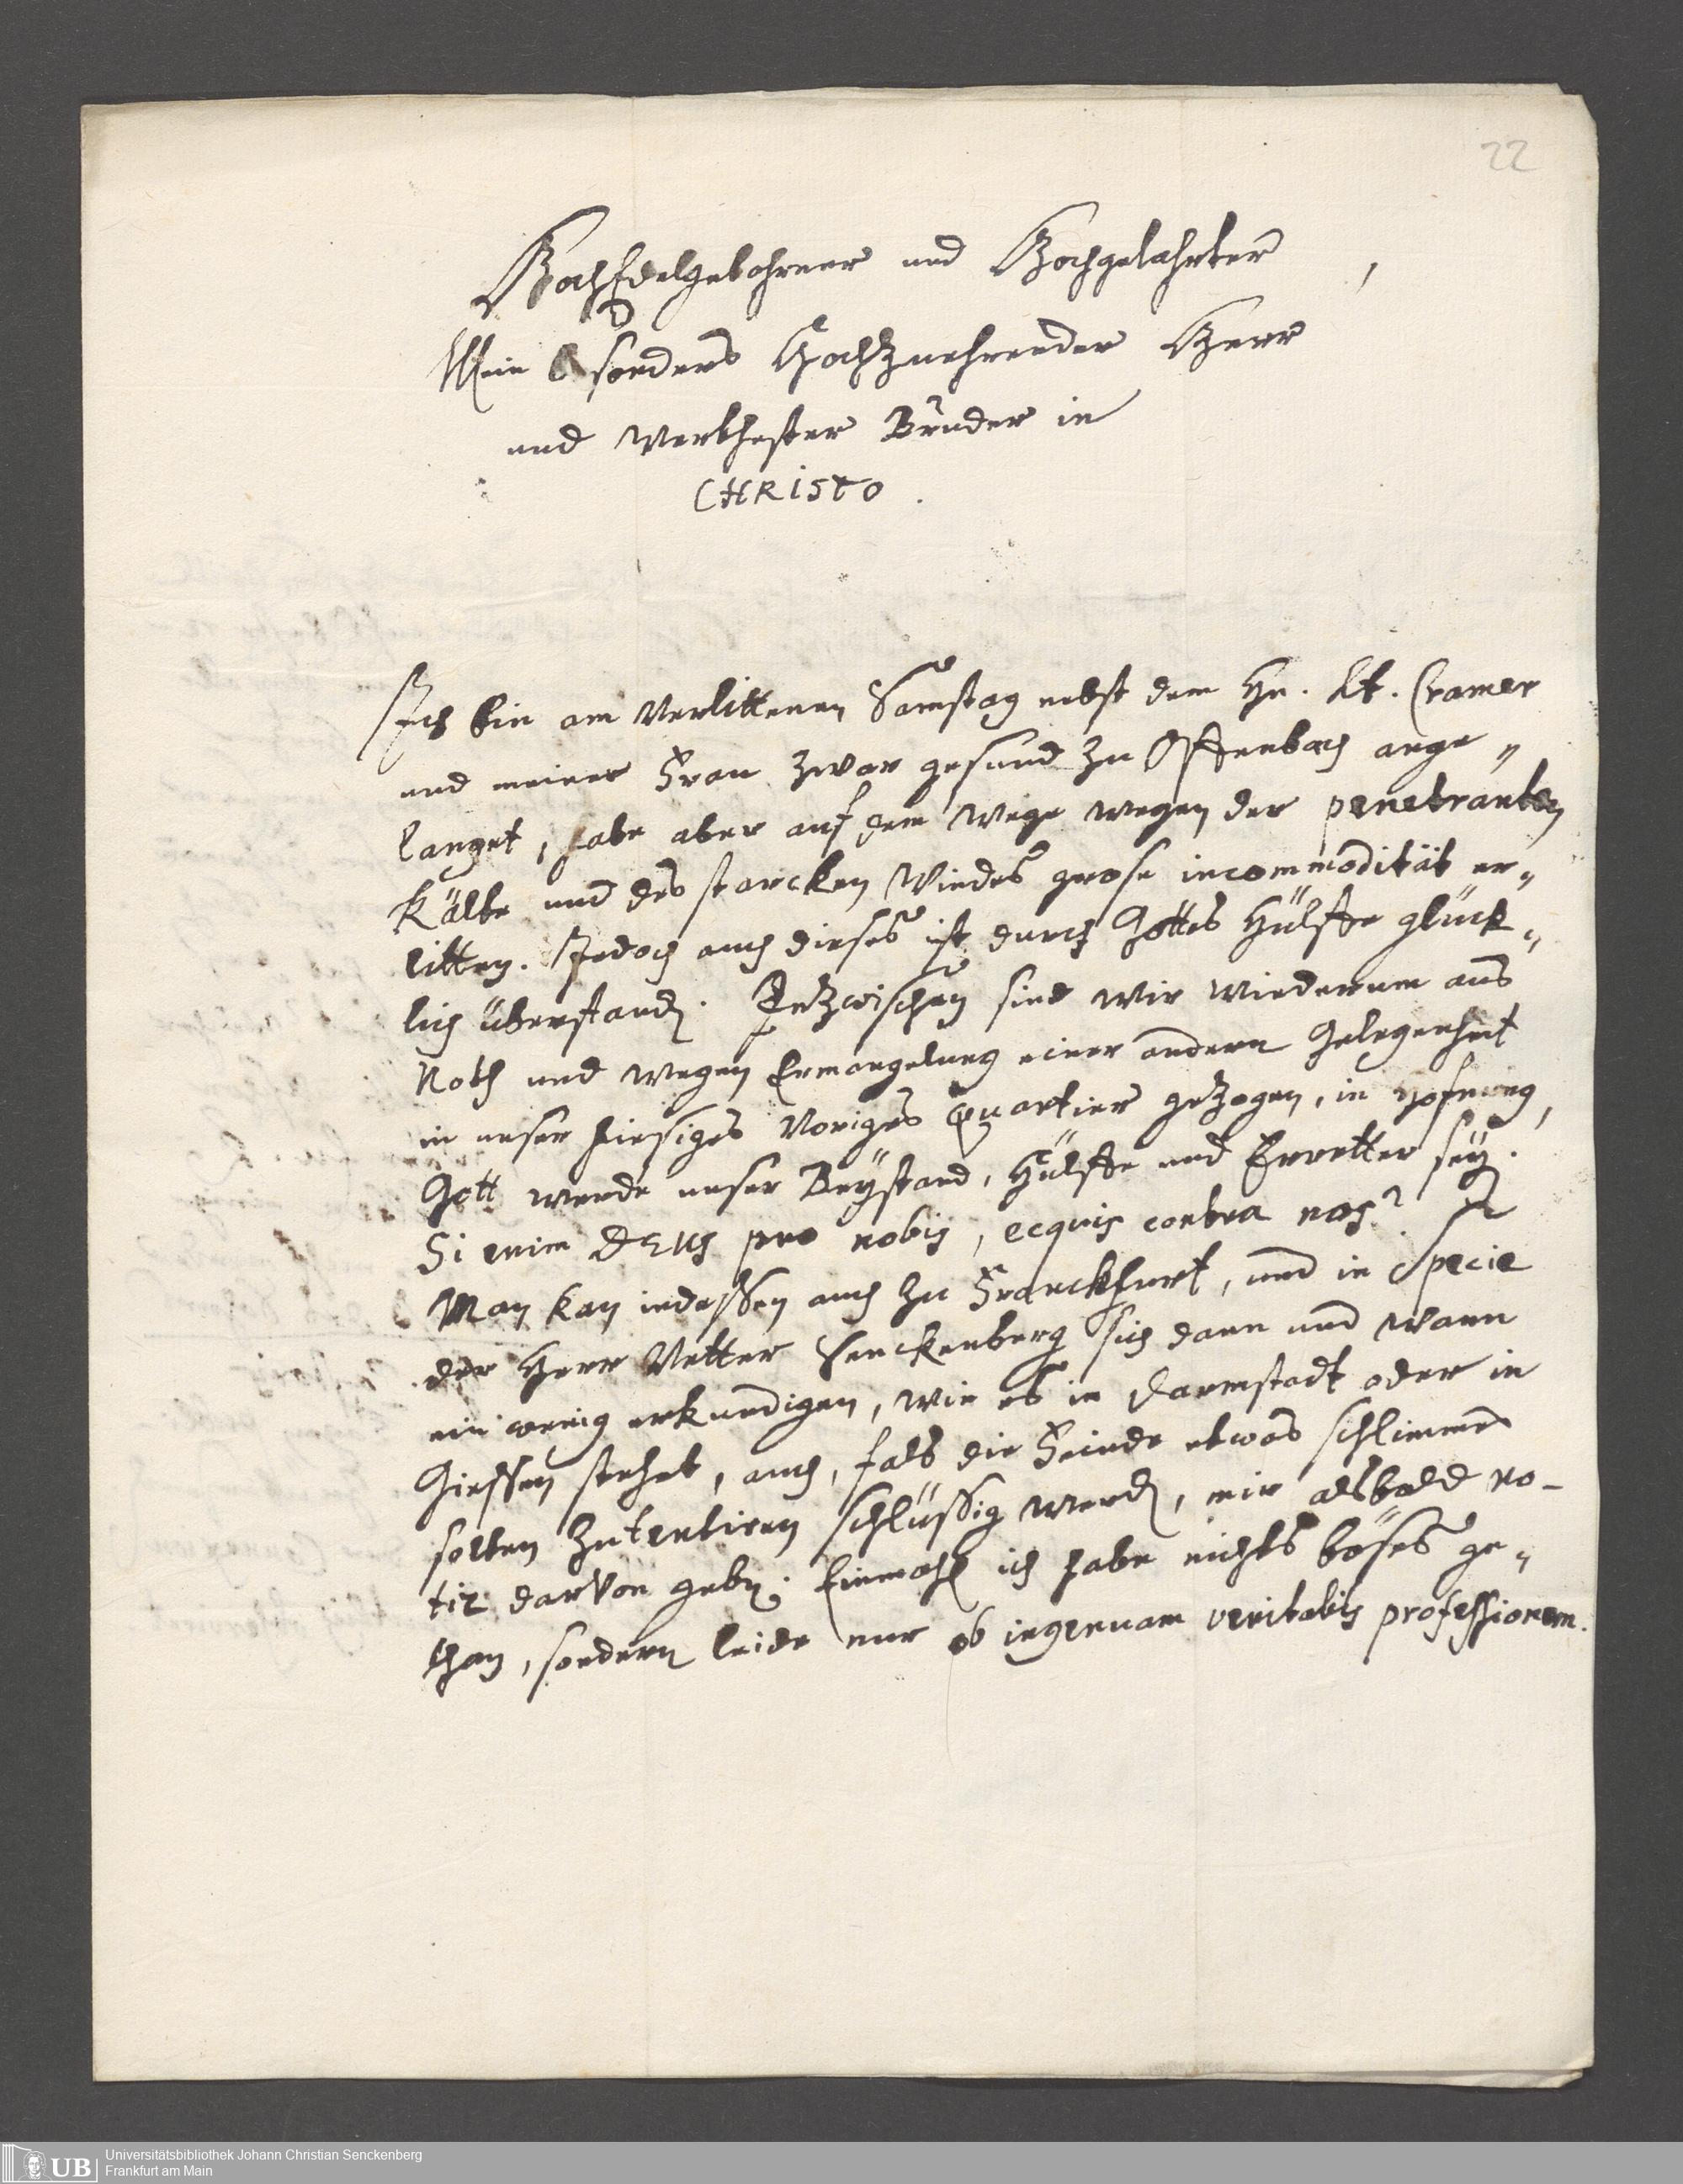 22
HochEdelgebohrner und Hochgelahrter,
Mein besonders HochZuehrender Herr
und Werthester Bruder in
CHRISTO.
Ich bin am Verlittenen Samstag nebst dem Hn. Lt. Cramer
und meiner Frau zwar gesund zu Offenbach ange„
langet, habe aber auf dem Wege wegen der penetranten
Kälte und des starcken Windes grose incommodität er„
litten. Jedoch auch dieses ist durch Gottes Hülffe glück„
lich überstanden. Inzwischen sind wir wiederum aus
Noth und wegen Ermangelung einer andern Gelegenheit
in unser hiesiges Voriges Quartier gezogen, in Hofnung,
Gott werde unser Beystand, Hülffe und Erretter seyn.
Si enim DEUs pro nobis, ecquis contra nos?
Man kan indessen auch zu Franckfurt, und in Specie
der Herr Vetter Senckenberg sich dann und wann
ein wenig erkundigen, wie es in Darmstadt oder in
Giessen stehet, auch, fals die Feinde etwas schlimmes
solten zu tentiren schlüssig werden, mir alsbald no-
tiz darVon geben. Einmahl ich habe nichts böses ge„
than, sondern leide nur ob ingenuam veritatis professionem.
UB
Universitätsbibliothek Johann Christian Senckenberg
Frankfurt am Main